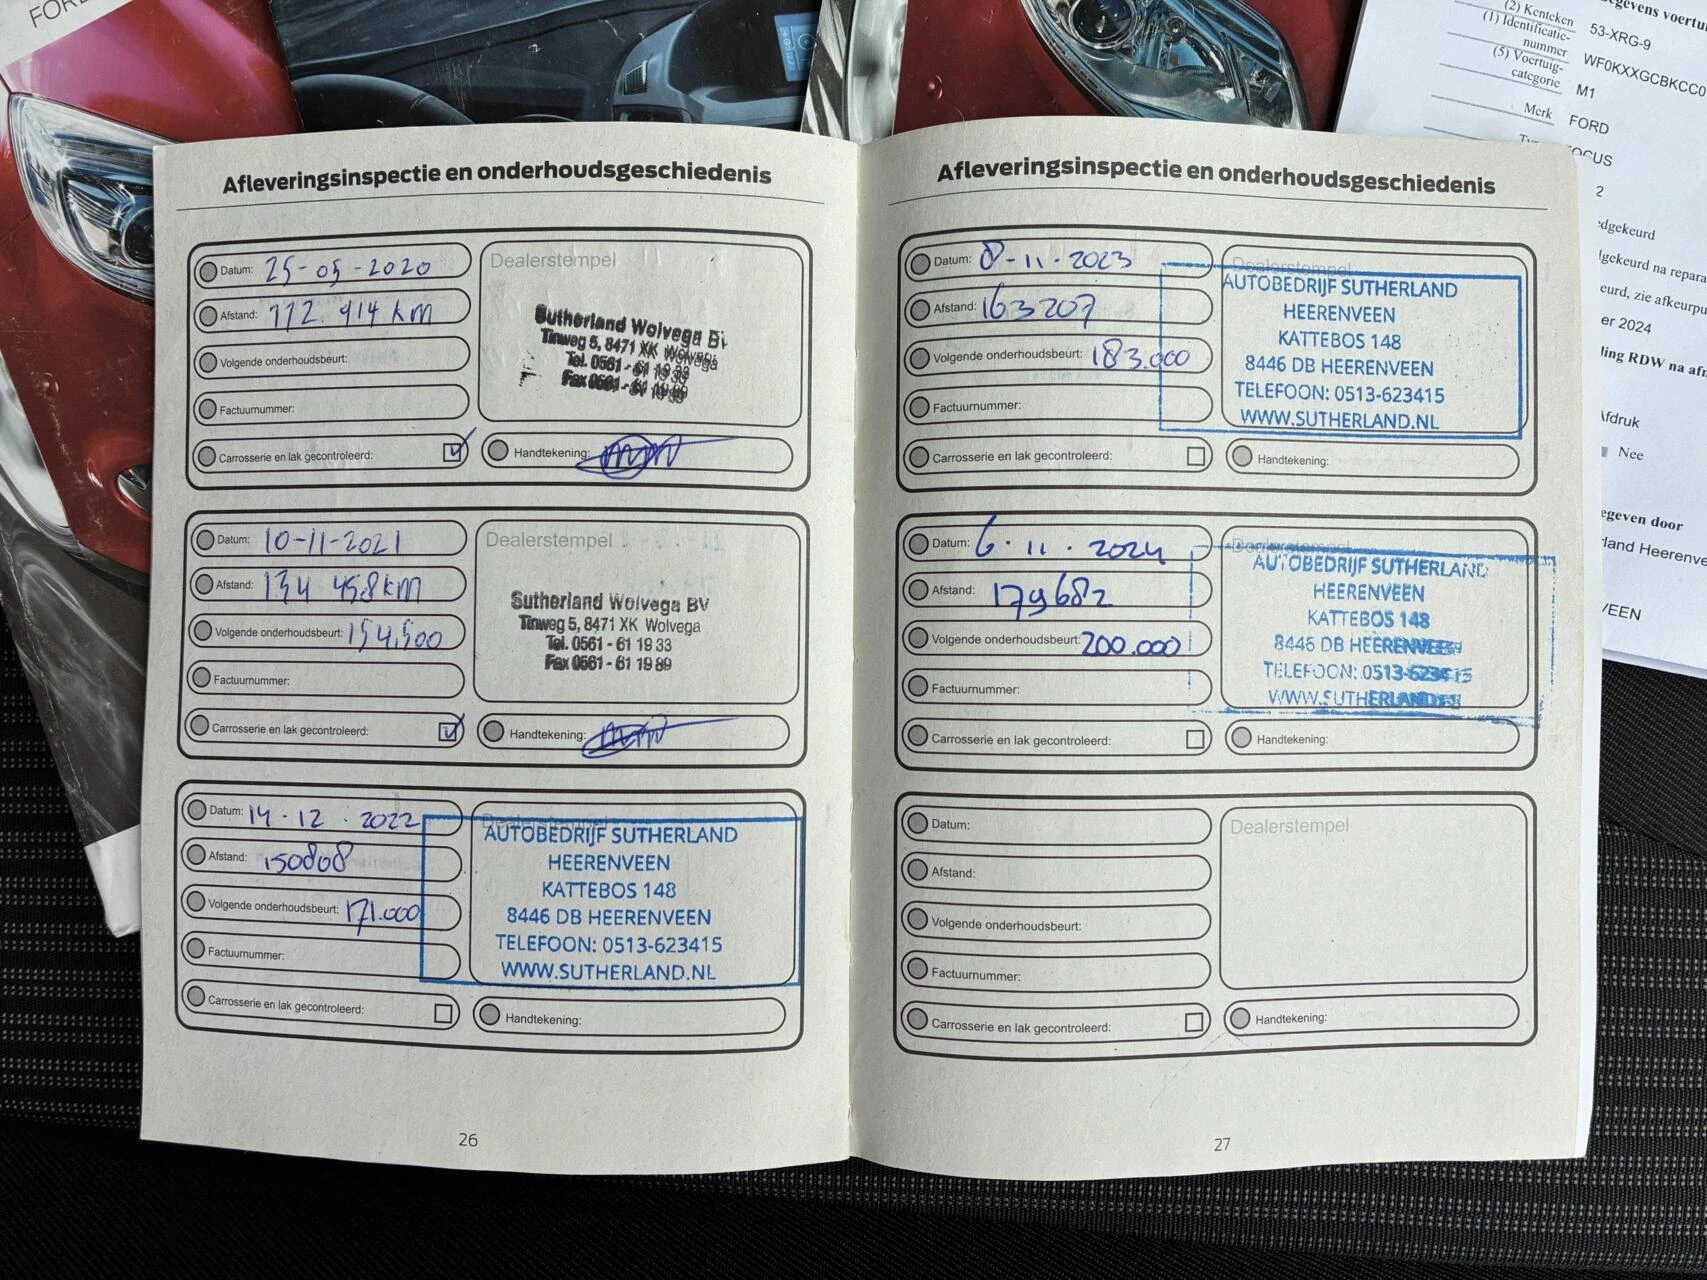 FORD
Afleveringsinspectie en onderhoudsgeschiedenis
Datum: 25-05-2020
Afstand: 112.414 km
Volgende onderhoudsbeurt:
Factuurnummer:
Carrosserie en lak gecontroleerd:
Dealerstempel
Sutherland Wolvega BV
Tinweg 5, 8471 XK Wolvega
Tel. 0561 - 61 19 33
Fax 0561 - 61 19 89
Handtekening:
Datum: 10-11-2021
Afstand: 134 458 km
Volgende onderhoudsbeurt: 154,500
Factuurnummer:
Carrosserie en lak gecontroleerd:
Dealerstempel
Sutherland Wolvega BV
Tinweg 5, 8471 XK Wolvega
Tel. 0561 - 61 19 33
Fax 0561 - 61 19 89
Handtekening:
Datum: 14-12-2022
Afstand: 150808
Volgende onderhoudsbeurt: 171.000
Factuurnummer:
Carrosserie en lak gecontroleerd:
Dealerstempel
AUTOBEDRIJF SUTHERLAND
HEERENVEEN
KATTEBOS 148
8446 DB HEERENVEEN
TELEFOON: 0513-623415
WWW.SUTHERLAND.NL
Handtekening:
26
Afleveringsinspectie en onderhoudsgeschiedenis
Datum: 8-11-2023
Afstand: 163207
Volgende onderhoudsbeurt: 183.000
Factuurnummer:
Carrosserie en lak gecontroleerd:
Dealerstempel
AUTOBEDRIJF SUTHERLAND
HEERENVEEN
KATTEBOS 148
8446 DB HEERENVEEN
TELEFOON: 0513-623415
WWW.SUTHERLAND.NL
Handtekening:
Datum: 6-11-2024
Afstand: 179682
Volgende onderhoudsbeurt: 200.000
Factuurnummer:
Carrosserie en lak gecontroleerd:
Dealerstempel
AUTOBEDRIJF SUTHERLAND
HEERENVEEN
KATTEBOS 148
8446 DB HEERENVEEN
TELEFOON: 0513-623415
WWW.SUTHERLAND.NL
Handtekening:
Datum:
Afstand:
Volgende onderhoudsbeurt:
Factuurnummer:
Carrosserie en lak gecontroleerd:
Dealerstempel
Handtekening:
27
(2) Kenteken 53-XRG-9
(1) Identificatie-
nummer WF0KXXGCBKCC0
(5) Voertuig-
categorie M1
Merk FORD
OCUS
2
gekeurd na repara
eurd, zie afkeurpu
er 2024
ling RDW na afm
Afdruk
Nee
egeven door
land Heerenve
VEEN